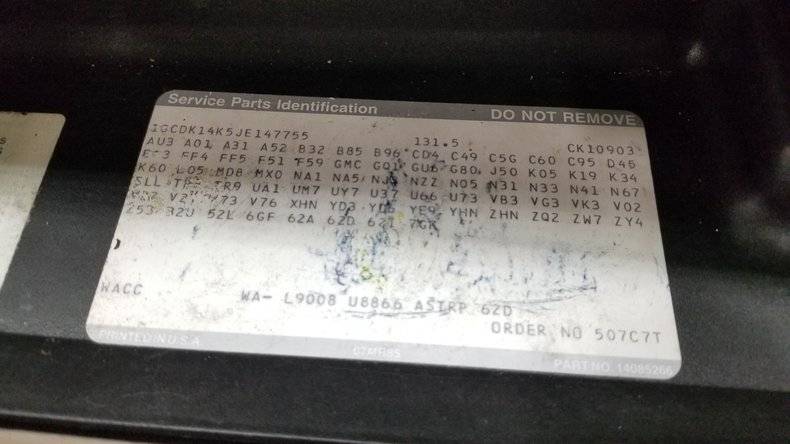 Service Parts Identification DO NOT REMOVE
1GCDK14K5JE147755 131.5 CK10903
AU3 A01 A31 A52 B32 B85 B96 CD4 C49 C5G C60 C95 D45
FF4 FF5 F51 F59 GMC GQ1 GU6 G80 J50 K05 K19 K34
K60 L05 MD8 MX0 NA1 NA5 NZZ N05 N31 N33 N41 N67
SLL TR9 UA1 UM7 UY7 U37 U66 U73 VB3 VG3 VK3 V02
V73 V76 XHN YD3 YE9 YHN ZHN ZQ2 ZW7 ZY4
Z53 52L 6GF 62A 62D
WACC WA- L9008 U8866 ASTRP 62D
ORDER NO 507C7T
PRINTED IN U.S.A. PART NO. 14085266